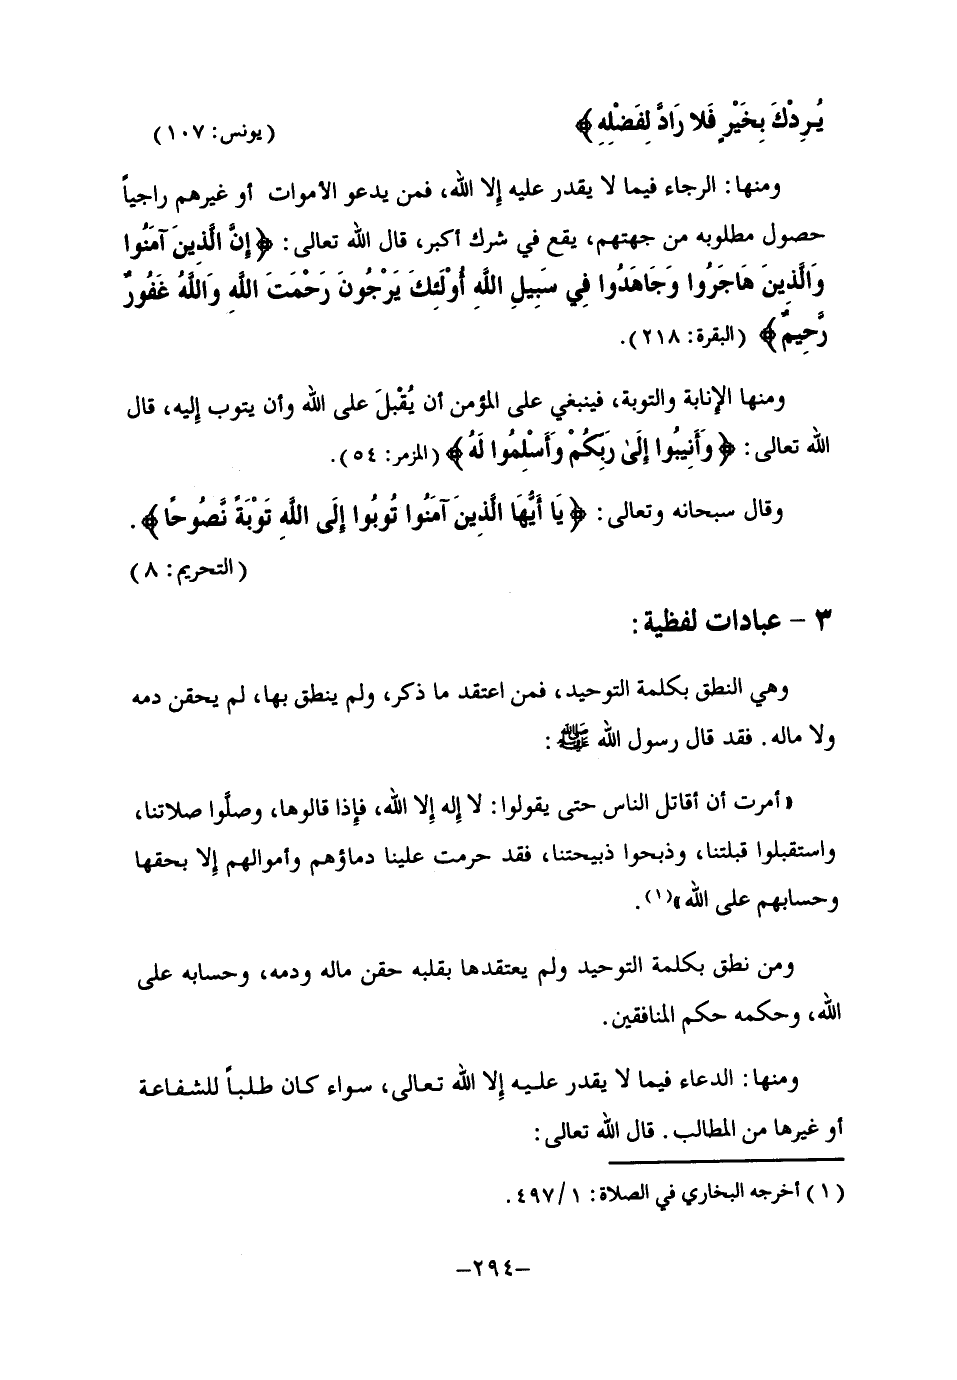 يُرِدْكَ بِخَيْرٍ فَلا رَادَّ لِفَضْلِهِ ﴾ (يونس: ١٠٧)
ومنها: الرجاء فيما لا يقدر عليه إلا الله، فمن يدعو الأموات أو غيرهم راجياً
حصول مطلوبه من جهتهم، يقع في شرك أكبر، قال الله تعالى: ﴿ إِنَّ الَّذِينَ آمَنُوا
وَالَّذِينَ هَاجَرُوا وَجَاهَدُوا فِي سَبِيلِ اللَّهِ أُوْلَئِكَ يَرْجُونَ رَحْمَتَ اللَّهِ وَاللَّهُ غَفُورٌ
رَّحِيمٌ ﴾ (البقرة: ٢١٨).
ومنها الإنابة والتوبة، فينبغي على المؤمن أن يُقْبلَ على الله وأن يتوب إليه، قال
الله تعالى: ﴿ وَأَنِيبُوا إِلَىٰ رَبِّكُمْ وَأَسْلِمُوا لَهُ ﴾ (المزمر: ٥٤).
وقال سبحانه وتعالى: ﴿ يَا أَيُّهَا الَّذِينَ آمَنُوا تُوبُوا إِلَى اللَّهِ تَوْبَةً نَّصُوحًا ﴾.
(التحريم: ٨)
٣ - عبادات لفظية:
وهي النطق بكلمة التوحيد، فمن اعتقد ما ذكر، ولم ينطق بها، لم يحقن دمه
ولا ماله. فقد قال رسول الله ﷺ:
«أمرت أن أقاتل الناس حتى يقولوا: لا إله إلا الله، فإذا قالوها، وصلَّوا صلاتنا،
واستقبلوا قبلتنا، وذبحوا ذبيحتنا، فقد حرمت علينا دماؤهم وأموالهم إلا بحقها
وحسابهم على الله»(١).
ومن نطق بكلمة التوحيد ولم يعتقدها بقلبه حقن ماله ودمه، وحسابه على
الله، وحكمه حكم المنافقين.
ومنها: الدعاء فيما لا يقدر عليه إلا الله تعالى، سواء كان طلباً للشفاعة
أو غيرها من المطالب. قال الله تعالى:
(١) أخرجه البخاري في الصلاة: ١/ ٤٩٧.
-٢٩٤-